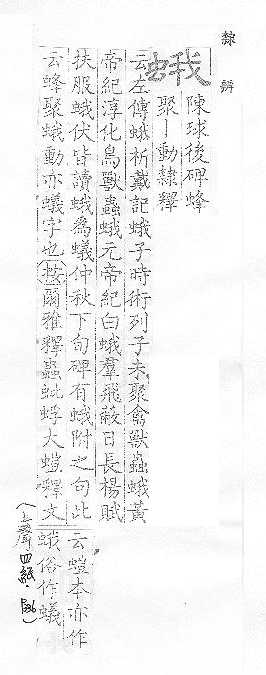 隸辨
蛾
陳球後碑蜂
聚｜動隸釋
云左傳蛾析戴記蛾子時術列子末聚禽獸蟲蛾黃
帝紀淳化鳥獸蟲蛾元帝紀白蛾羣飛蔽日長楊賦
扶服蛾伏皆讀蛾爲蟻仲秋下旬碑有蛾附之句此
云蜂聚蛾動亦蟻字也按爾雅釋蟲蚍蜉大螘釋文
云螘本亦作
蛾俗作蟻
(上聲．四紙．P86)